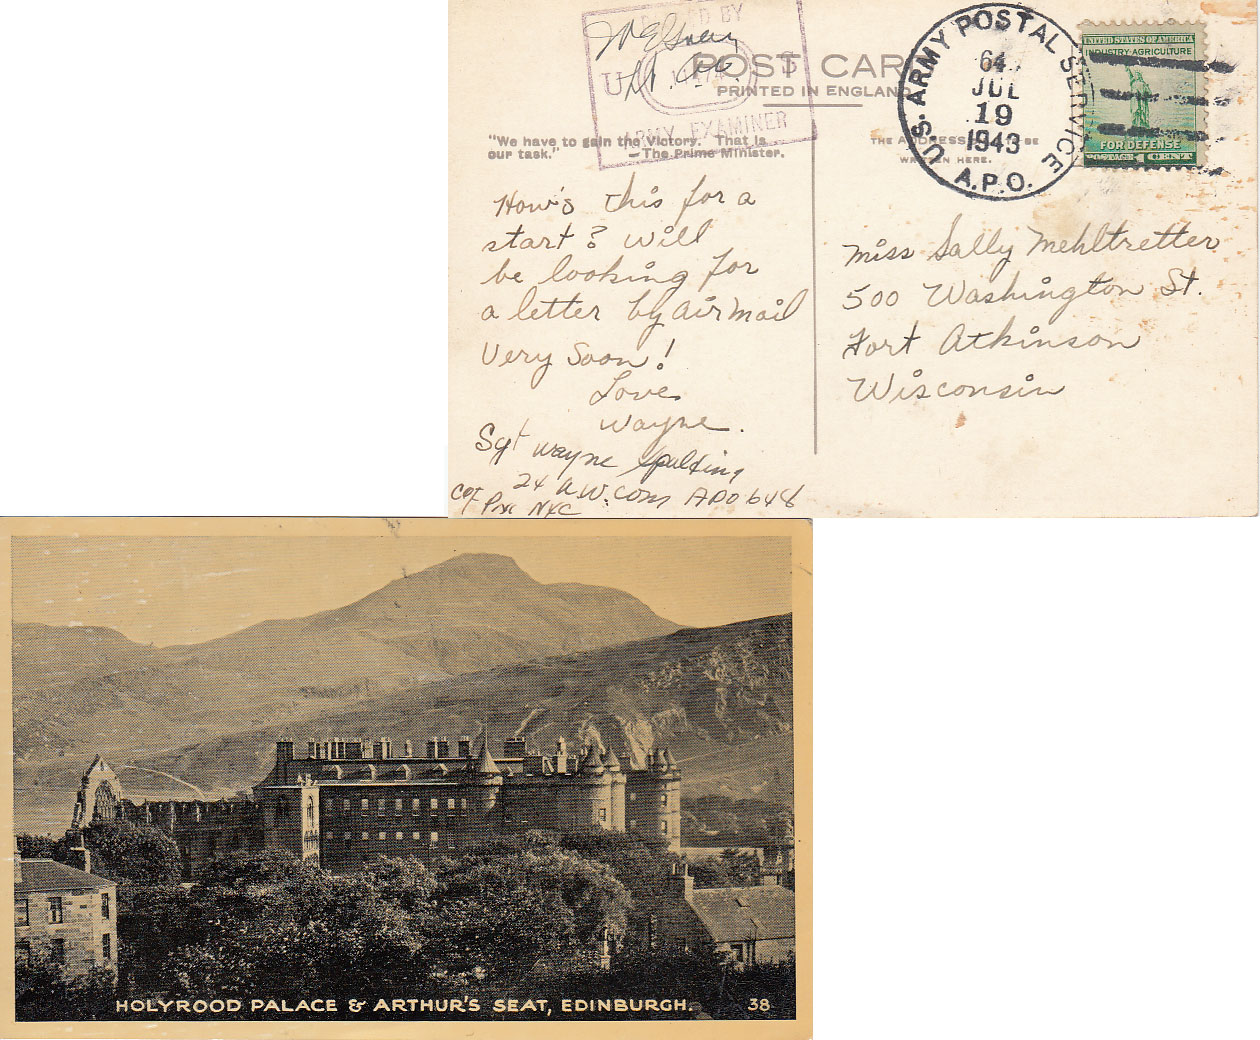 PASSED BY
U S
ARMY EXAMINER
POST CARD
PRINTED IN ENGLAND
"We have to gain the Victory. That is
our task." —The Prime Minister.
THE ADDRESS BE
WRITTEN HERE.
U.S. ARMY POSTAL SERVICE
64
JUL
19
1943
A.P.O.
UNITED STATES OF AMERICA
INDUSTRY·AGRICULTURE
FOR DEFENSE
POSTAGE 1 CENT
How's this for a
start? Will
be looking for
a letter by air mail
Very Soon!
Love,
Wayne.
Sgt Wayne Spalding
24 A.W. Com APO 648
NYC
Miss Sally Mehltretter
500 Washington St.
Fort Atkinson
Wisconsin
HOLYROOD PALACE & ARTHUR'S SEAT, EDINBURGH. 38